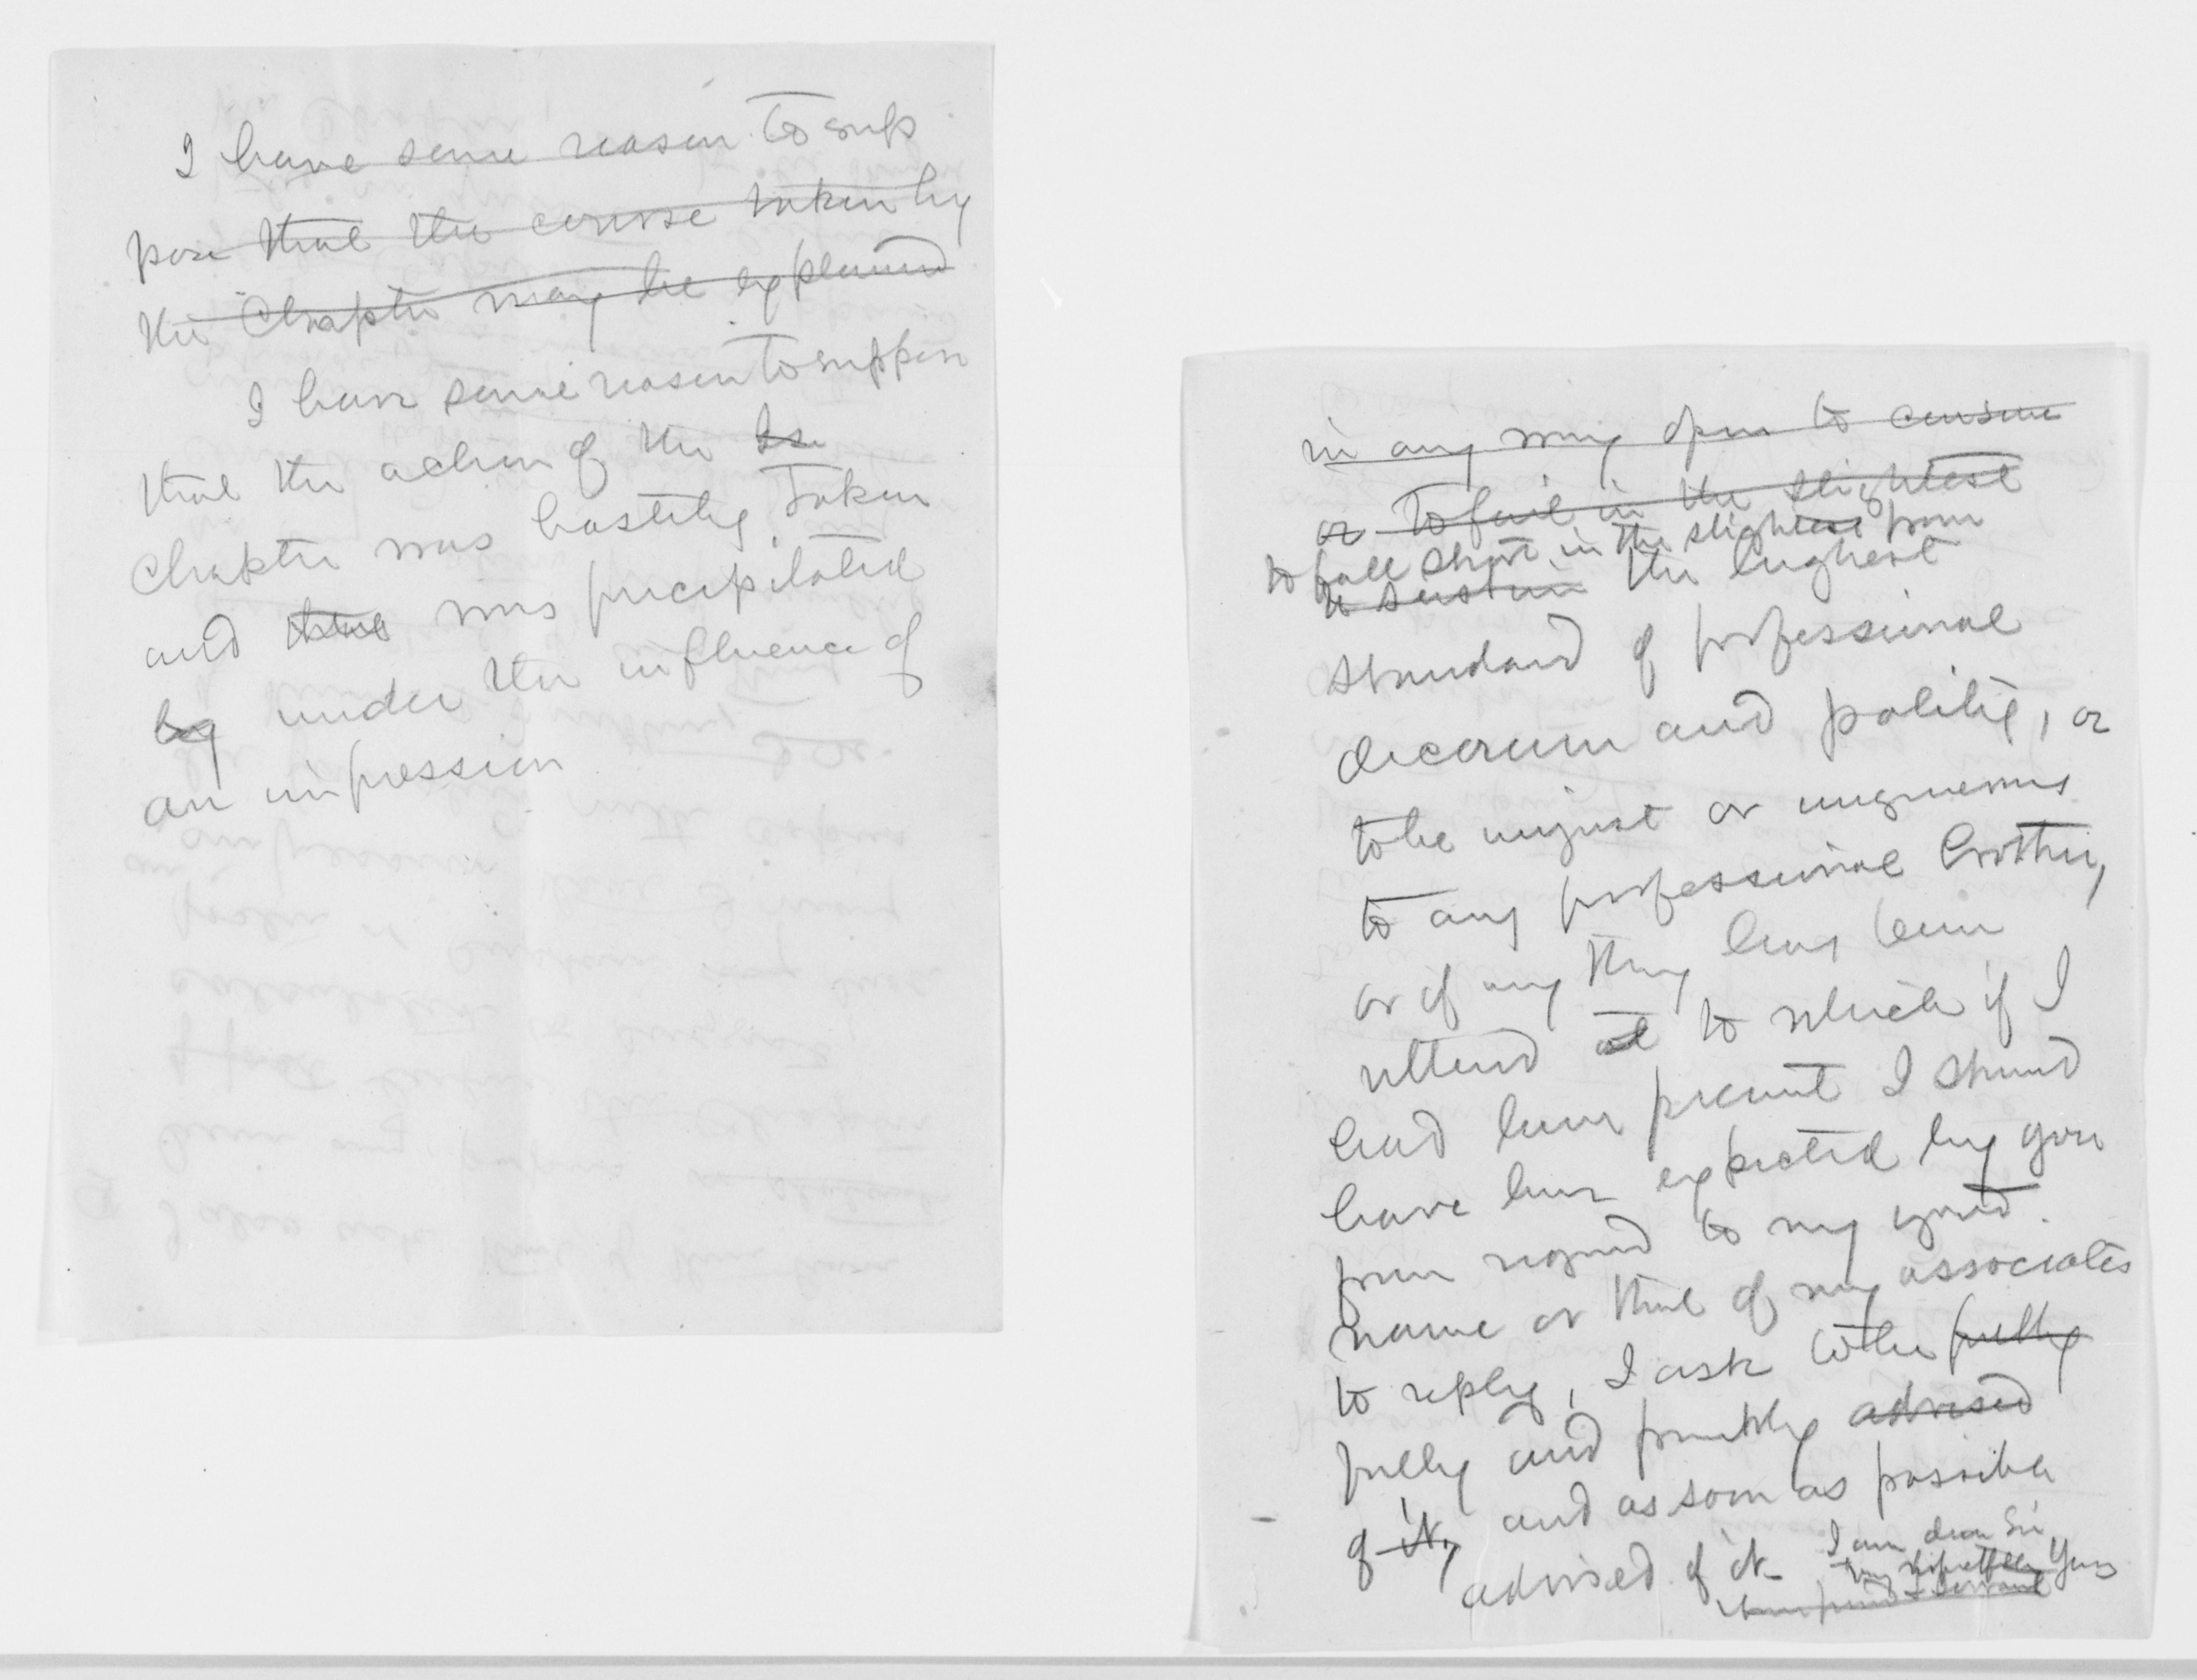 I have some reason to sup
pose that the course taken by
the Chapter may be explained
I have some reason to suppose
that the action of the
Chapter was hastily taken
and that was precipitated
by under the influence of
an impression
in any way open to censure
or to fail in the slightest
to fall short in the slightest from
to sustain the highest
standard of professional
decorum and polity, or
to be unjust or ungenerous
to any professional brother,
or if any thing has been
uttered at to which if I
had been present I should
have been expected by you
from regard to my good
name or that of my associates
to reply, I ask to be fully
fully and promptly advised
of it, and as soon as possible
advised of it I am dear Sir
Very respectfully Yours
servant